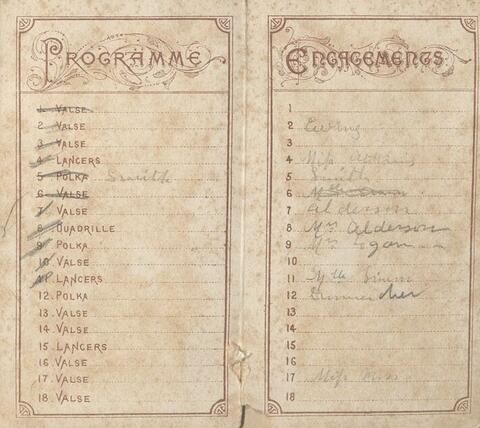 PROGRAMME
1 VALSE
2 VALSE
3 VALSE
4 LANCERS
5 POLKA Smith
6 VALSE
7 VALSE
8 QUADRILLE
9 POLKA
10 VALSE
11 LANCERS
12. POLKA
13. VALSE
14. VALSE
15. LANCERS
16. VALSE
17. VALSE
18. VALSE
ENGAGEMENTS
1
2
3
4 Miss
5 Smith
6
7 Alderson
8 Mrs Alderson
9
10
11
12
13
14
15
16
17 Miss
18